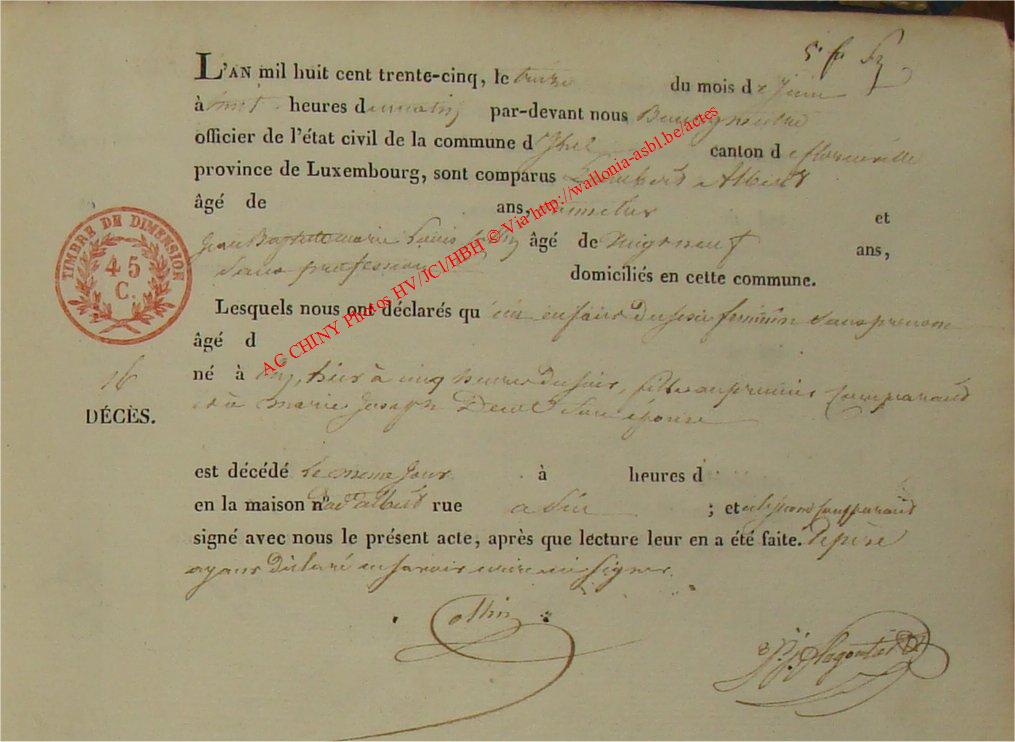 L'AN mil huit cent trente-cinq, le treize du mois de Juin
à huit heures du matin par-devant nous Bourgmestre
officier de l'état civil de la commune d'Izel canton de florenville
province de Luxembourg, sont comparus Lambert Albert
âgé de ans, et
Jean Baptiste marie Louis Collin âgé de vingt neuf ans,
Sans profession domiciliés en cette commune.
Lesquels nous ont déclarés qu'un enfant du sexe feminin sans prenom
âgé d
né à hier à cinq heures du soir, fille du premier Comparant
et de marie Joseph Son épouse
est décédé le meme jour à heures d
en la maison n° dud. albert rue ; et le second comparant
signé avec nous le présent acte, après que lecture leur en a été faite. le père
ayant déclaré ne savoir ecrire ni signer.
Collin
16
DÉCÈS.
TIMBRE DE DIMENSION
45
C.
AC CHINY Photos HV/JCl/HBH © Via http://wallonia-asbl.be/actes